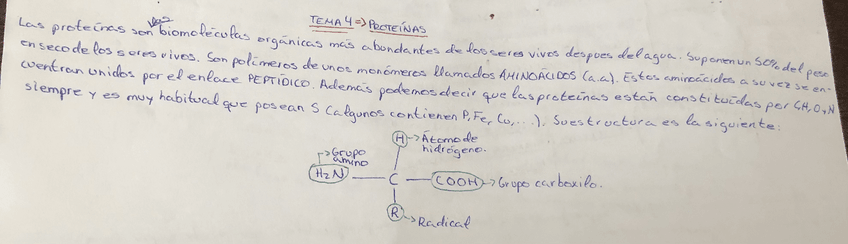 TEMA 4 => PROTEÍNAS
Las proteínas son las biomoléculas orgánicas más abundantes de los seres vivos despues del agua. Suponen un 50% del peso
en seco de los seres vivos. Son polímeros de unos monómeros llamados AMINOÁCIDOS (a.a). Estos aminoácidos a su vez se en-
cuentran unidos por el enlace PEPTÍDICO. Además podemos decir que las proteínas están constituidas por C,H,O,N
siempre y es muy habitual que posean S (algunos contienen P, Fe, Cu, ...). Su estructura es la siguiente:
H → Átomo de
hidrógeno.
→ Grupo
amino
H₂N — C — COOH → Grupo carboxilo.
R → Radical